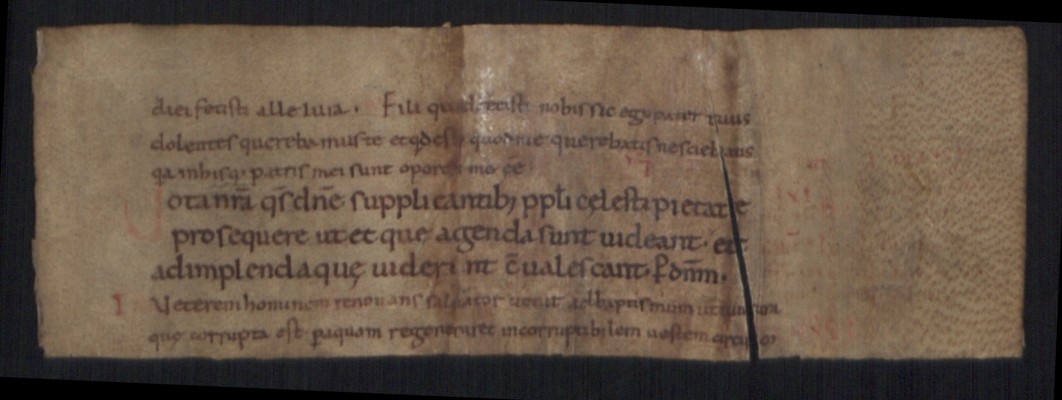 diei fecisti alleluia. Fili quid fecisti nobis sic ego pater tuus
dolentes querebamus te et qd est quod me querebatis nesciebatis
qa in his q patris mei sunt oportet me ee
Uota nra qs dne supplicantib; ppli cęlesti pietate
prosequere ut et que agenda sunt uideant. et
ad implenda quę uiderint c ualescant. p dnm.
Veterem hominem renouans saluator uenit ad baptismum ut naturam
que corrupta est p aquam regeneraret incorruptibilem uestem